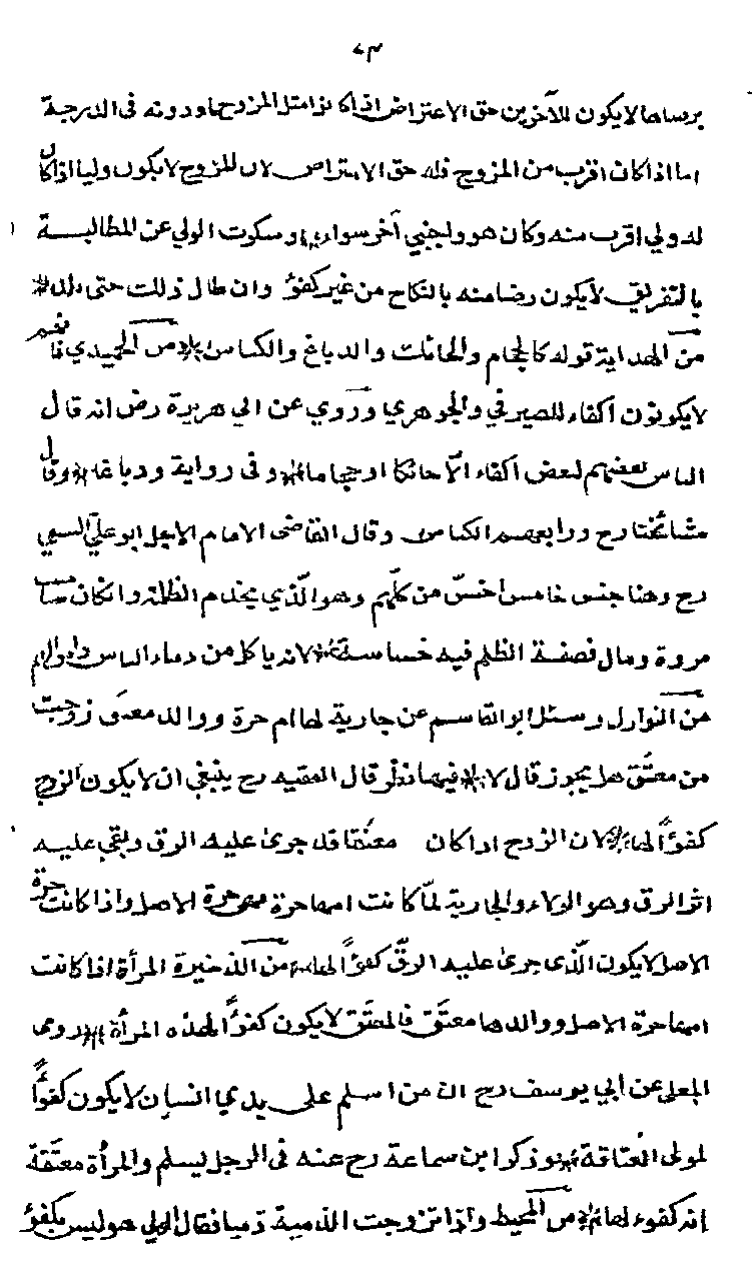 ٧٣
برضاها لا يكون للآخرين حق الاعتراض اذا كانوا مثل المزوج او دونه فى الدرجة
اما اذا كان اقرب من المزوج فله حق الاعتراض لان المزوج لا يكون وليا اذا كان
له ولي اقرب منه وكان هو واجنبي آخر سواء وسكوت الولي عن المطالبــة
بالتفريق لا يكون رضا منه بالنكاح من غير كفؤ وان طال ذلك حتى تلد
من الهداية قوله كالحجام والحائك والدباغ والكناس من الحميدي
لا يكونون أكفاء للصيرفي والجوهري وروي عن ابي هريرة رض انه قال
الناس بعضهم لبعض أكفاء الّا حائكا او حجاما وفى رواية ودباغا وقال
مشائخنا رح ورابعهم الكناس وقال القاضى الامام الاجل ابو علي
رح وهنا جنس خامس اخسّ من كلّهم وهو الّذي يخدم الظلمة وانكان صاحب
مروة ومال فصفة الظلم فيه خساسة لانه ياكل من دماء الناس واموالهم
من النوازل وسئل ابو القاسم عن جارية لها ام حرة ووالد معتق زوجت
من معتَق هل يجوز قال لا فيها نظر قال الفقيه رح ينبغي ان لا يكون الزوج
كفؤًا لها لان الزوج اذا كان معتقا قد جرى عليه الرق وبقي عليه
اثر الرق وهو الولاء والجارية لمّا كانت امها حرة فهى حرة الاصل واذا كانت حرة
الاصل لا يكون الّذى جرى عليه الرقّ كفؤًا لها من الذخيرة المرأة اذا كانت
امها حرة الاصل ووالدها معتَق فالمعتَق لا يكون كفؤًا لهذه المرأة روى
المعلى عن ابي يوسف رح ان من اسلم على يدي انسان لا يكون كفؤًا
لمولى العتاقة وذكر ابن سماعة رح عنه فى الرجل يسلم والمرأة معتَقة
انه كفوء لها من المحيط واذا تزوجت الذمية ذميا فقال الولي هو ليس بكفؤ